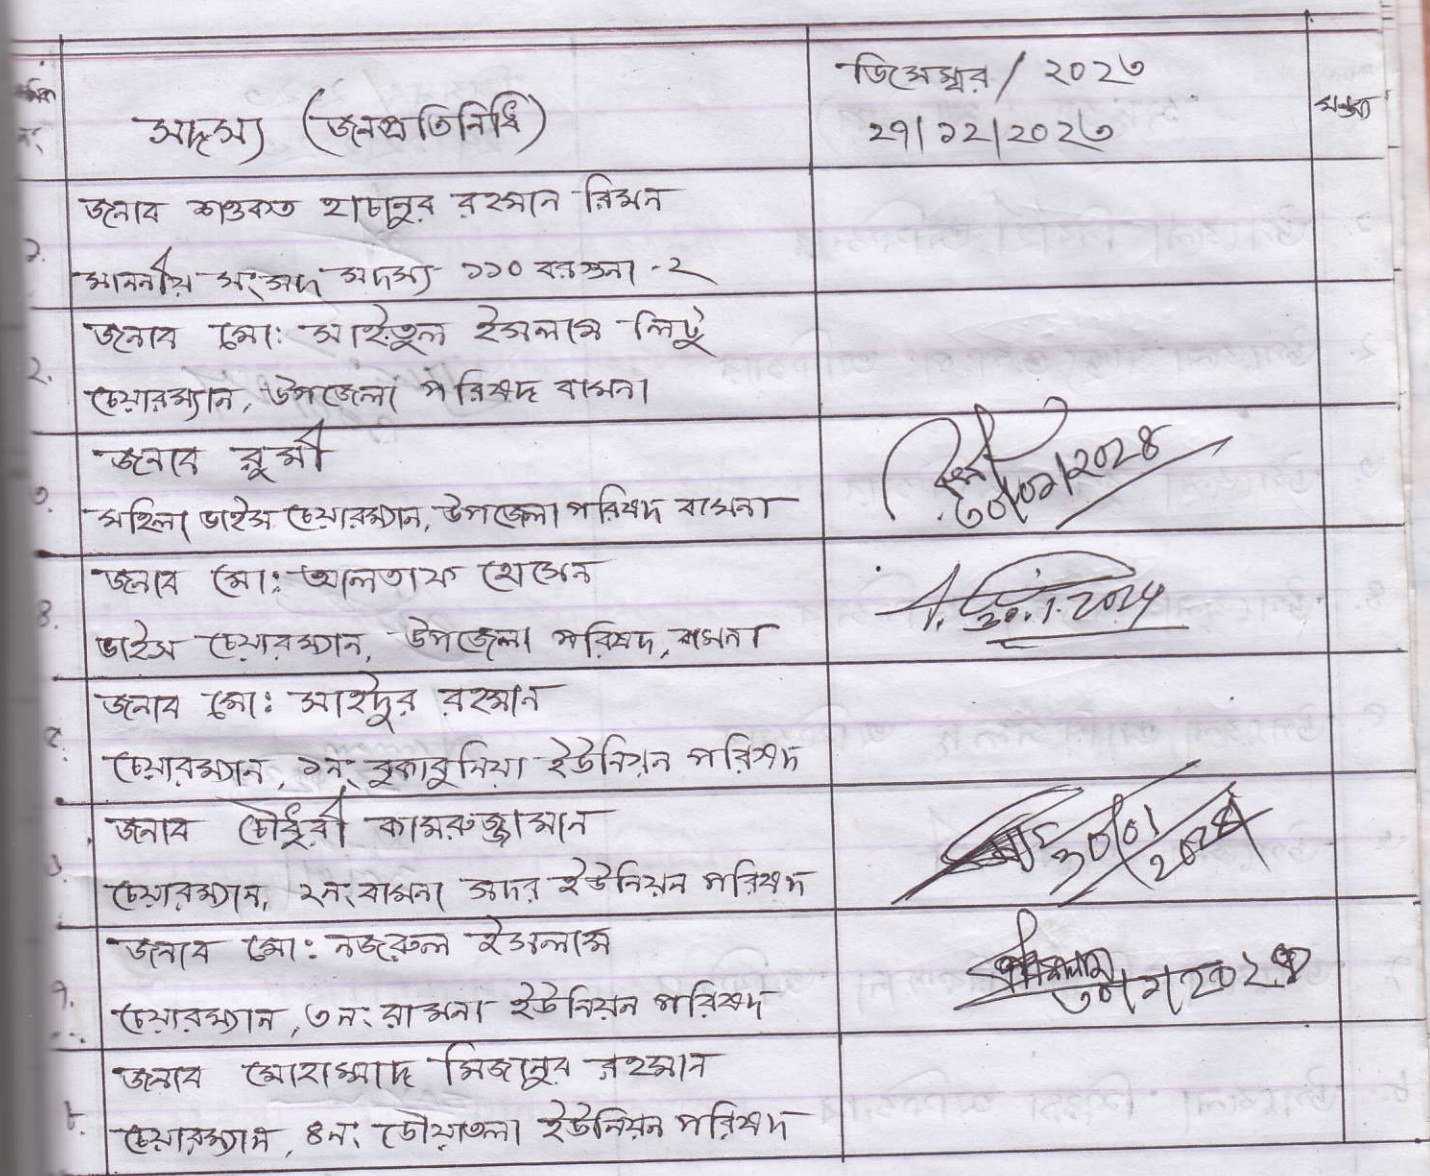 ডিসেম্বর / ২০২৩
সদস্য (জনপ্রতিনিধি)
২৭/১২/২০২৩
মন্তব্য
জনাব শওকত হাচানুর রহমান রিমন
১.
মাননীয় সংসদ সদস্য ১১০ বরগুনা -২
জনাব মো: সাইতুল ইসলাম লিটু
২.
চেয়ারম্যান, উপজেলা পরিষদ বামনা
জনাব রুমী
৩.
মহিলা ভাইস চেয়ারম্যান, উপজেলা পরিষদ বামনা
৩০/০১/২০২৪
জনাব মো: আলতাফ হোসেন
৪.
ভাইস চেয়ারম্যান, উপজেলা পরিষদ, বামনা
30.1.2024
জনাব মো: সাইদুর রহমান
৫.
চেয়ারম্যান, ১নং বুকাবুনিয়া ইউনিয়ন পরিষদ
জনাব চৌধুরী কামরুজ্জামান
৬.
চেয়ারম্যান, ২নং বামনা সদর ইউনিয়ন পরিষদ
30/01/2024
জনাব মো: নজরুল ইসলাম
৭.
চেয়ারম্যান, ৩নং রামনা ইউনিয়ন পরিষদ
৩০/১/২০২৪
জনাব মোহাম্মাদ মিজানুর রহমান
৮.
চেয়ারম্যান, ৪নং ডৌয়াতলা ইউনিয়ন পরিষদ